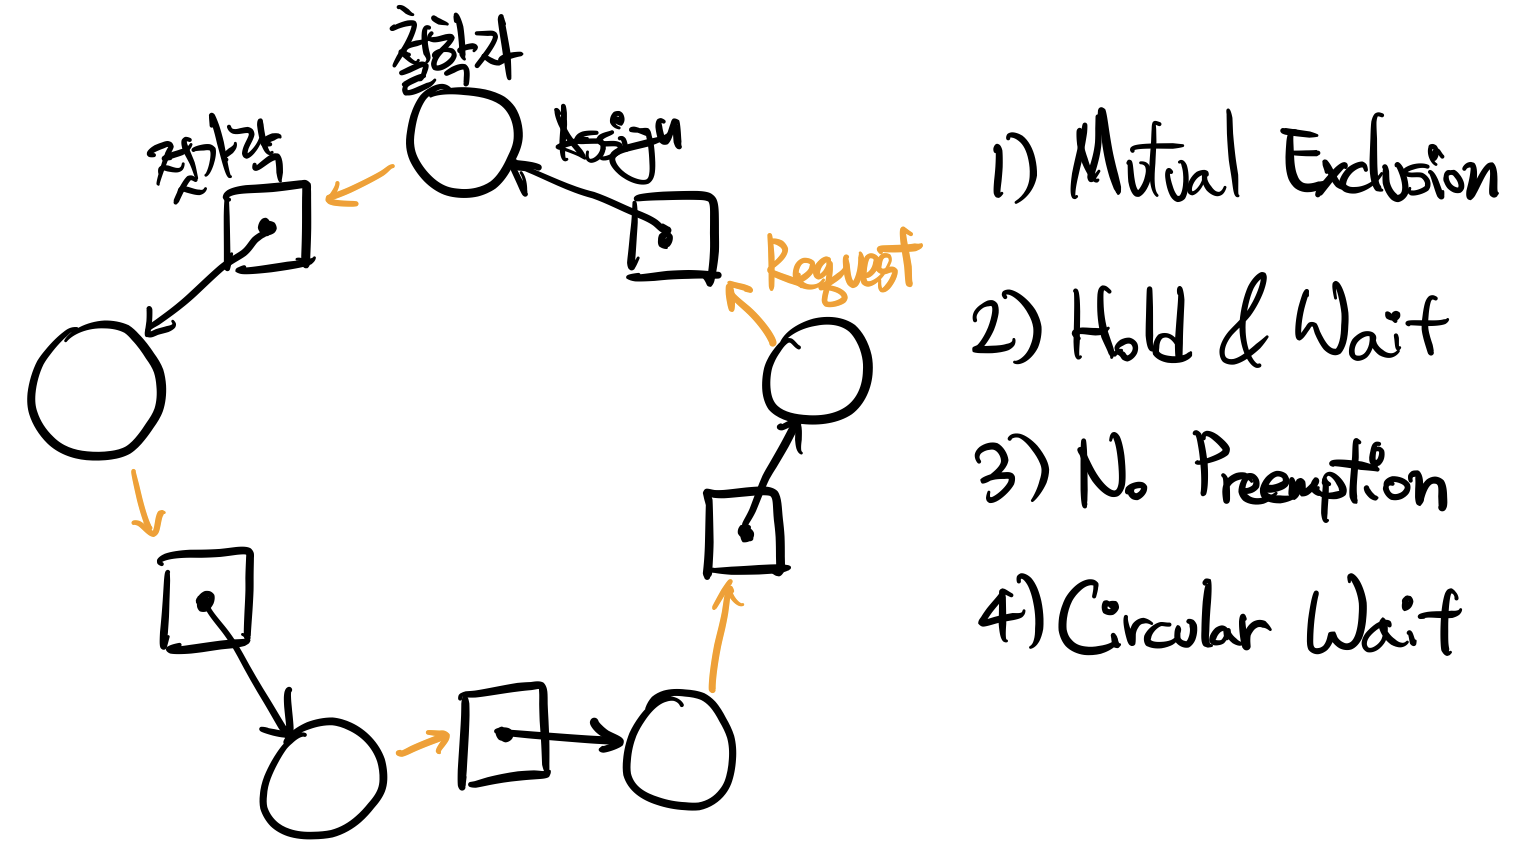 철학자
젓가락
Assign
Request
1) Mutual Exclusion
2) Hold & Wait
3) No Preemption
4) Circular Wait